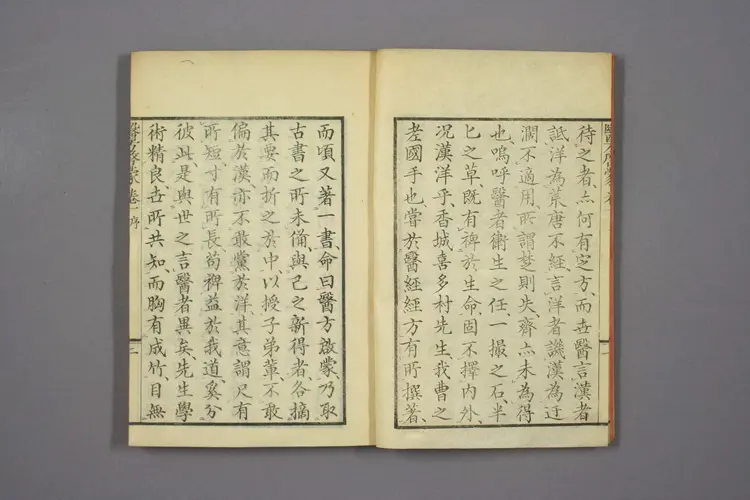 待之者亦何有定方、而世醫言漢者
詆洋為荒唐不經、言洋者譏漢為迂
濶不適用、所謂楚則失齊亦未為得
也、嗚呼醫者衛生之任、一撮之石、半
匕之草、既有裨於生命、固不擇內外、
况漢洋乎、香城喜多村先生我曹之
老國手也、嘗於醫經經方有所撰著、
而頃又著一書、命曰醫方啟蒙、乃取
古書之所未備、與己之新得者、各摘
其要而折之於中、以授子弟輩、不敢
偏於漢、亦不敢黨於洋、其意謂尺有
所短寸有所長、苟裨益於我道、奚分
彼此、是與世之言醫者異矣、先生學
術精良世所共知、而胸有成竹目無
醫方啟蒙 卷一序
二